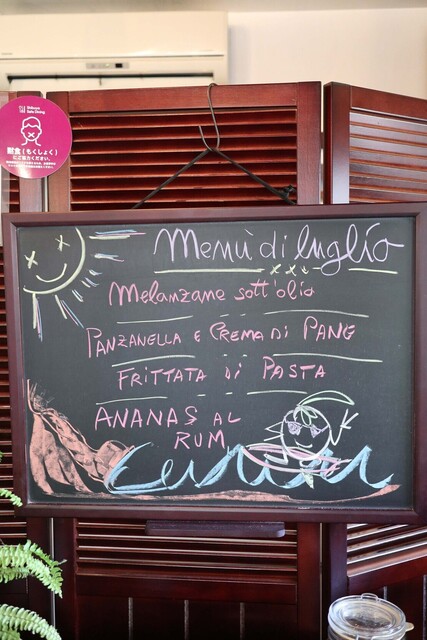 Shibuya
Safe Dining
黙食(もくしょく)
にご協力ください。
Menù di luglio
Melanzane sott'olio
PANZANELLA E CREMA DI PANE
FRITTATA DI PASTA
ANANAS AL
RUM